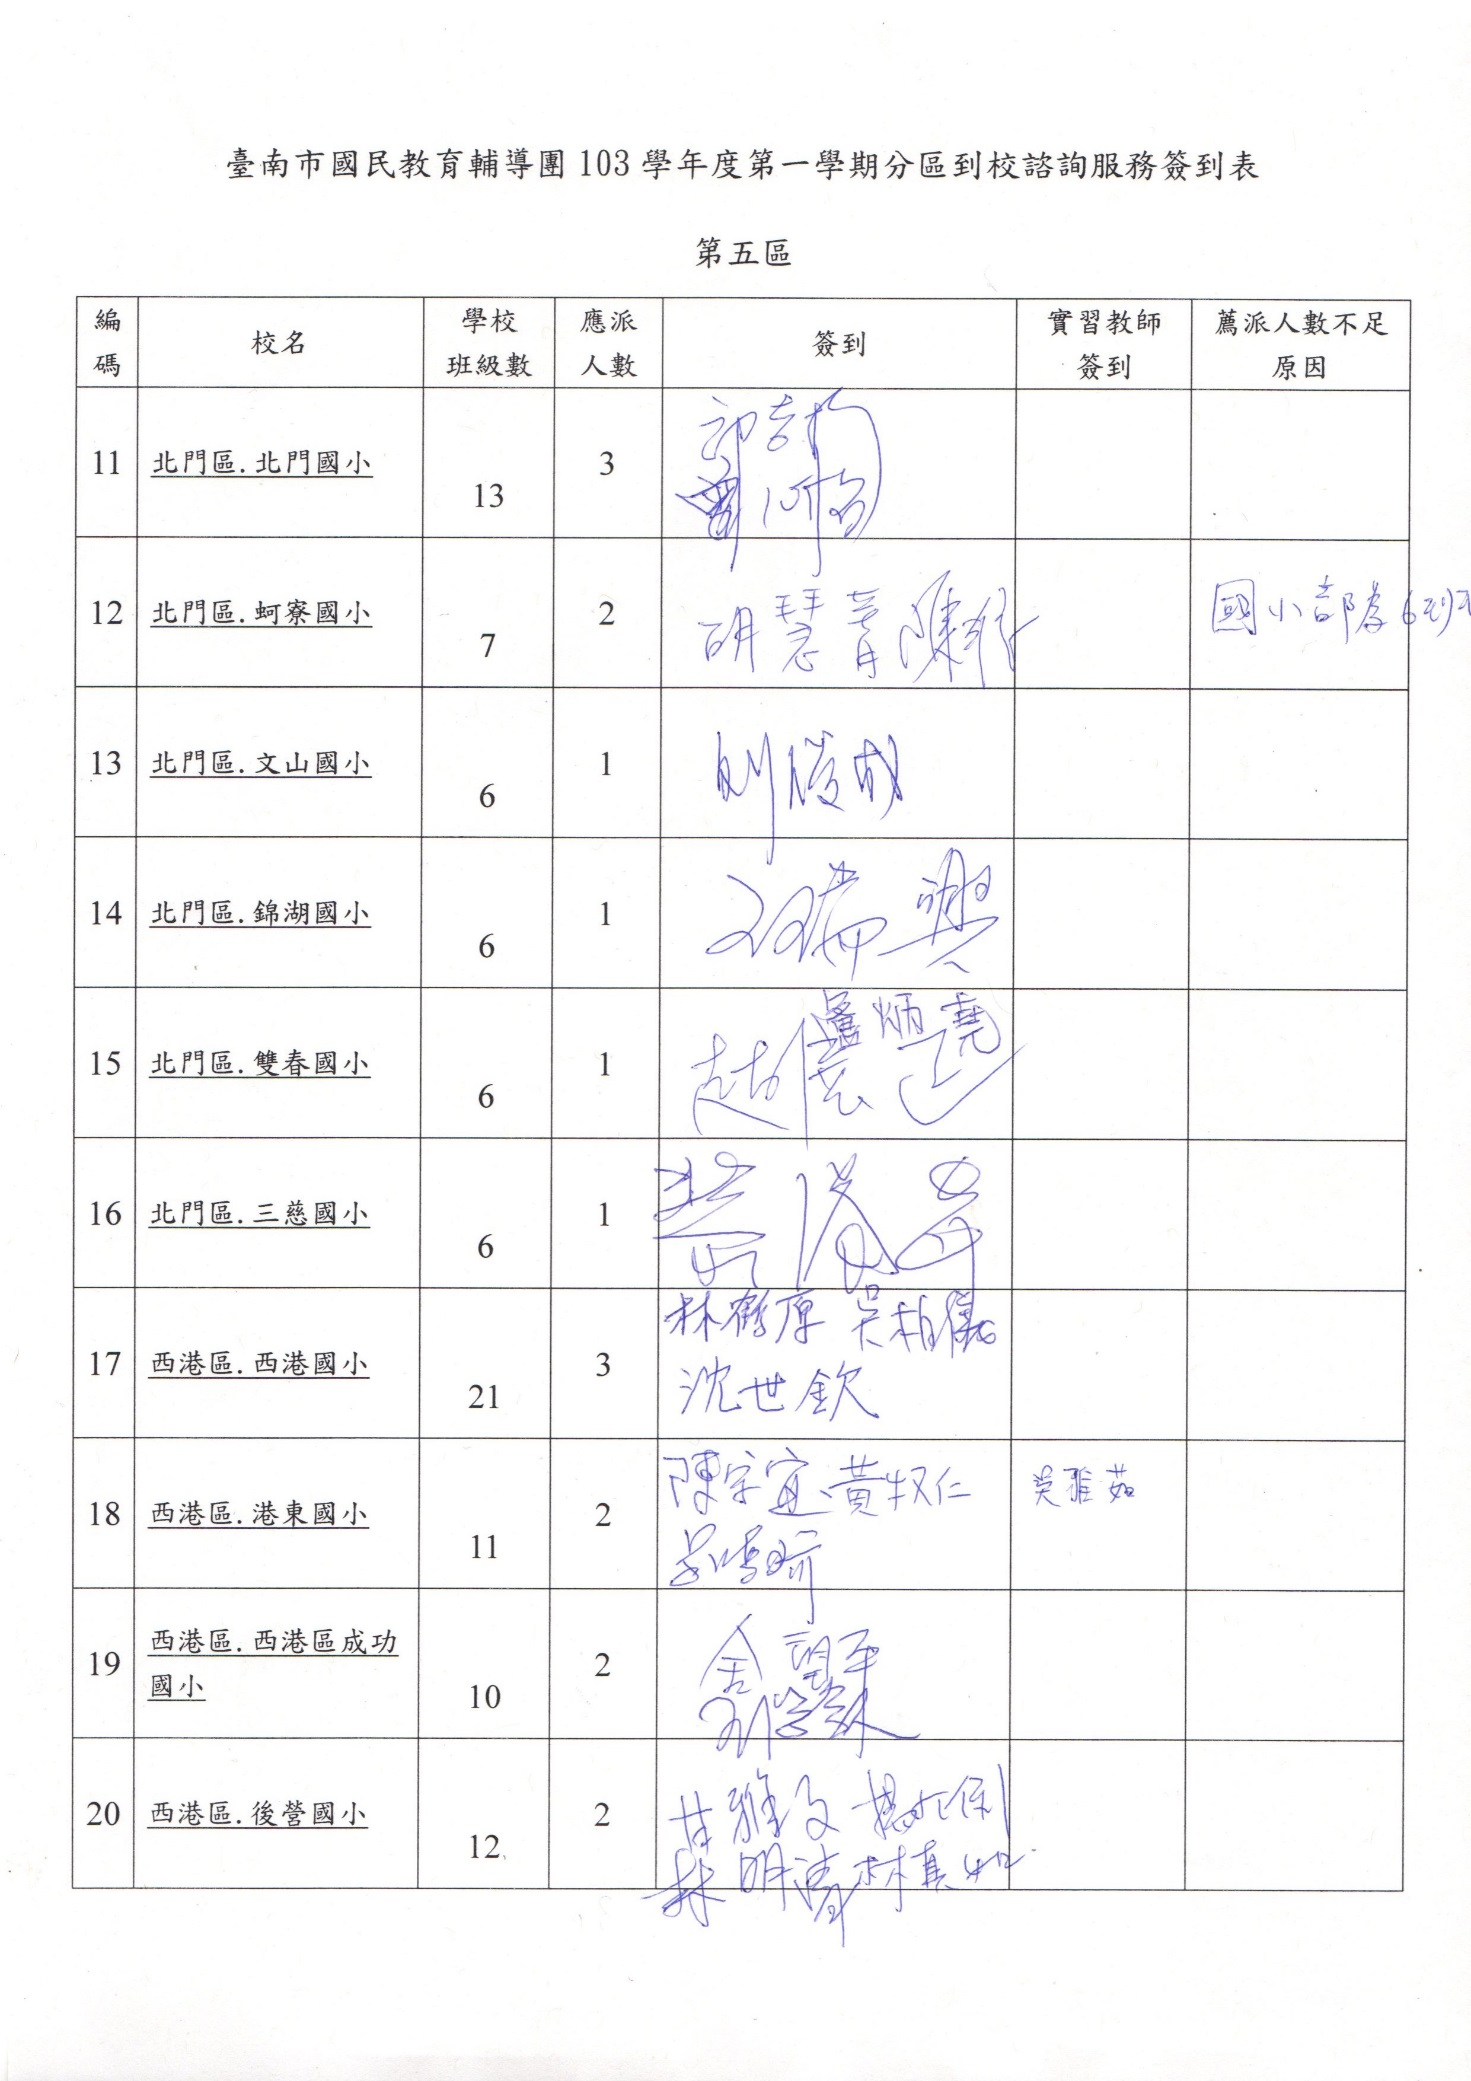 臺南市國民教育輔導團 103 學年度第一學期分區到校諮詢服務簽到表
第五區
編碼 校名 學校班級數 應派人數 簽到 實習教師簽到 薦派人數不足原因
11 北門區.北門國小 13 3
12 北門區.蚵寮國小 7 2 胡慧菁 國小部 6
13 北門區.文山國小 6 1
14 北門區.錦湖國小 6 1
15 北門區.雙春國小 6 1
16 北門區.三慈國小 6 1
17 西港區.西港國小 21 3 林鶴原 吳柏儀
沈世欽
18 西港區.港東國小 11 2 陳宗宜 黃牧仁 吳雅茹
19 西港區.西港區成功國小 10 2
20 西港區.後營國小 12 2 甘雅文
林明濤 林真如